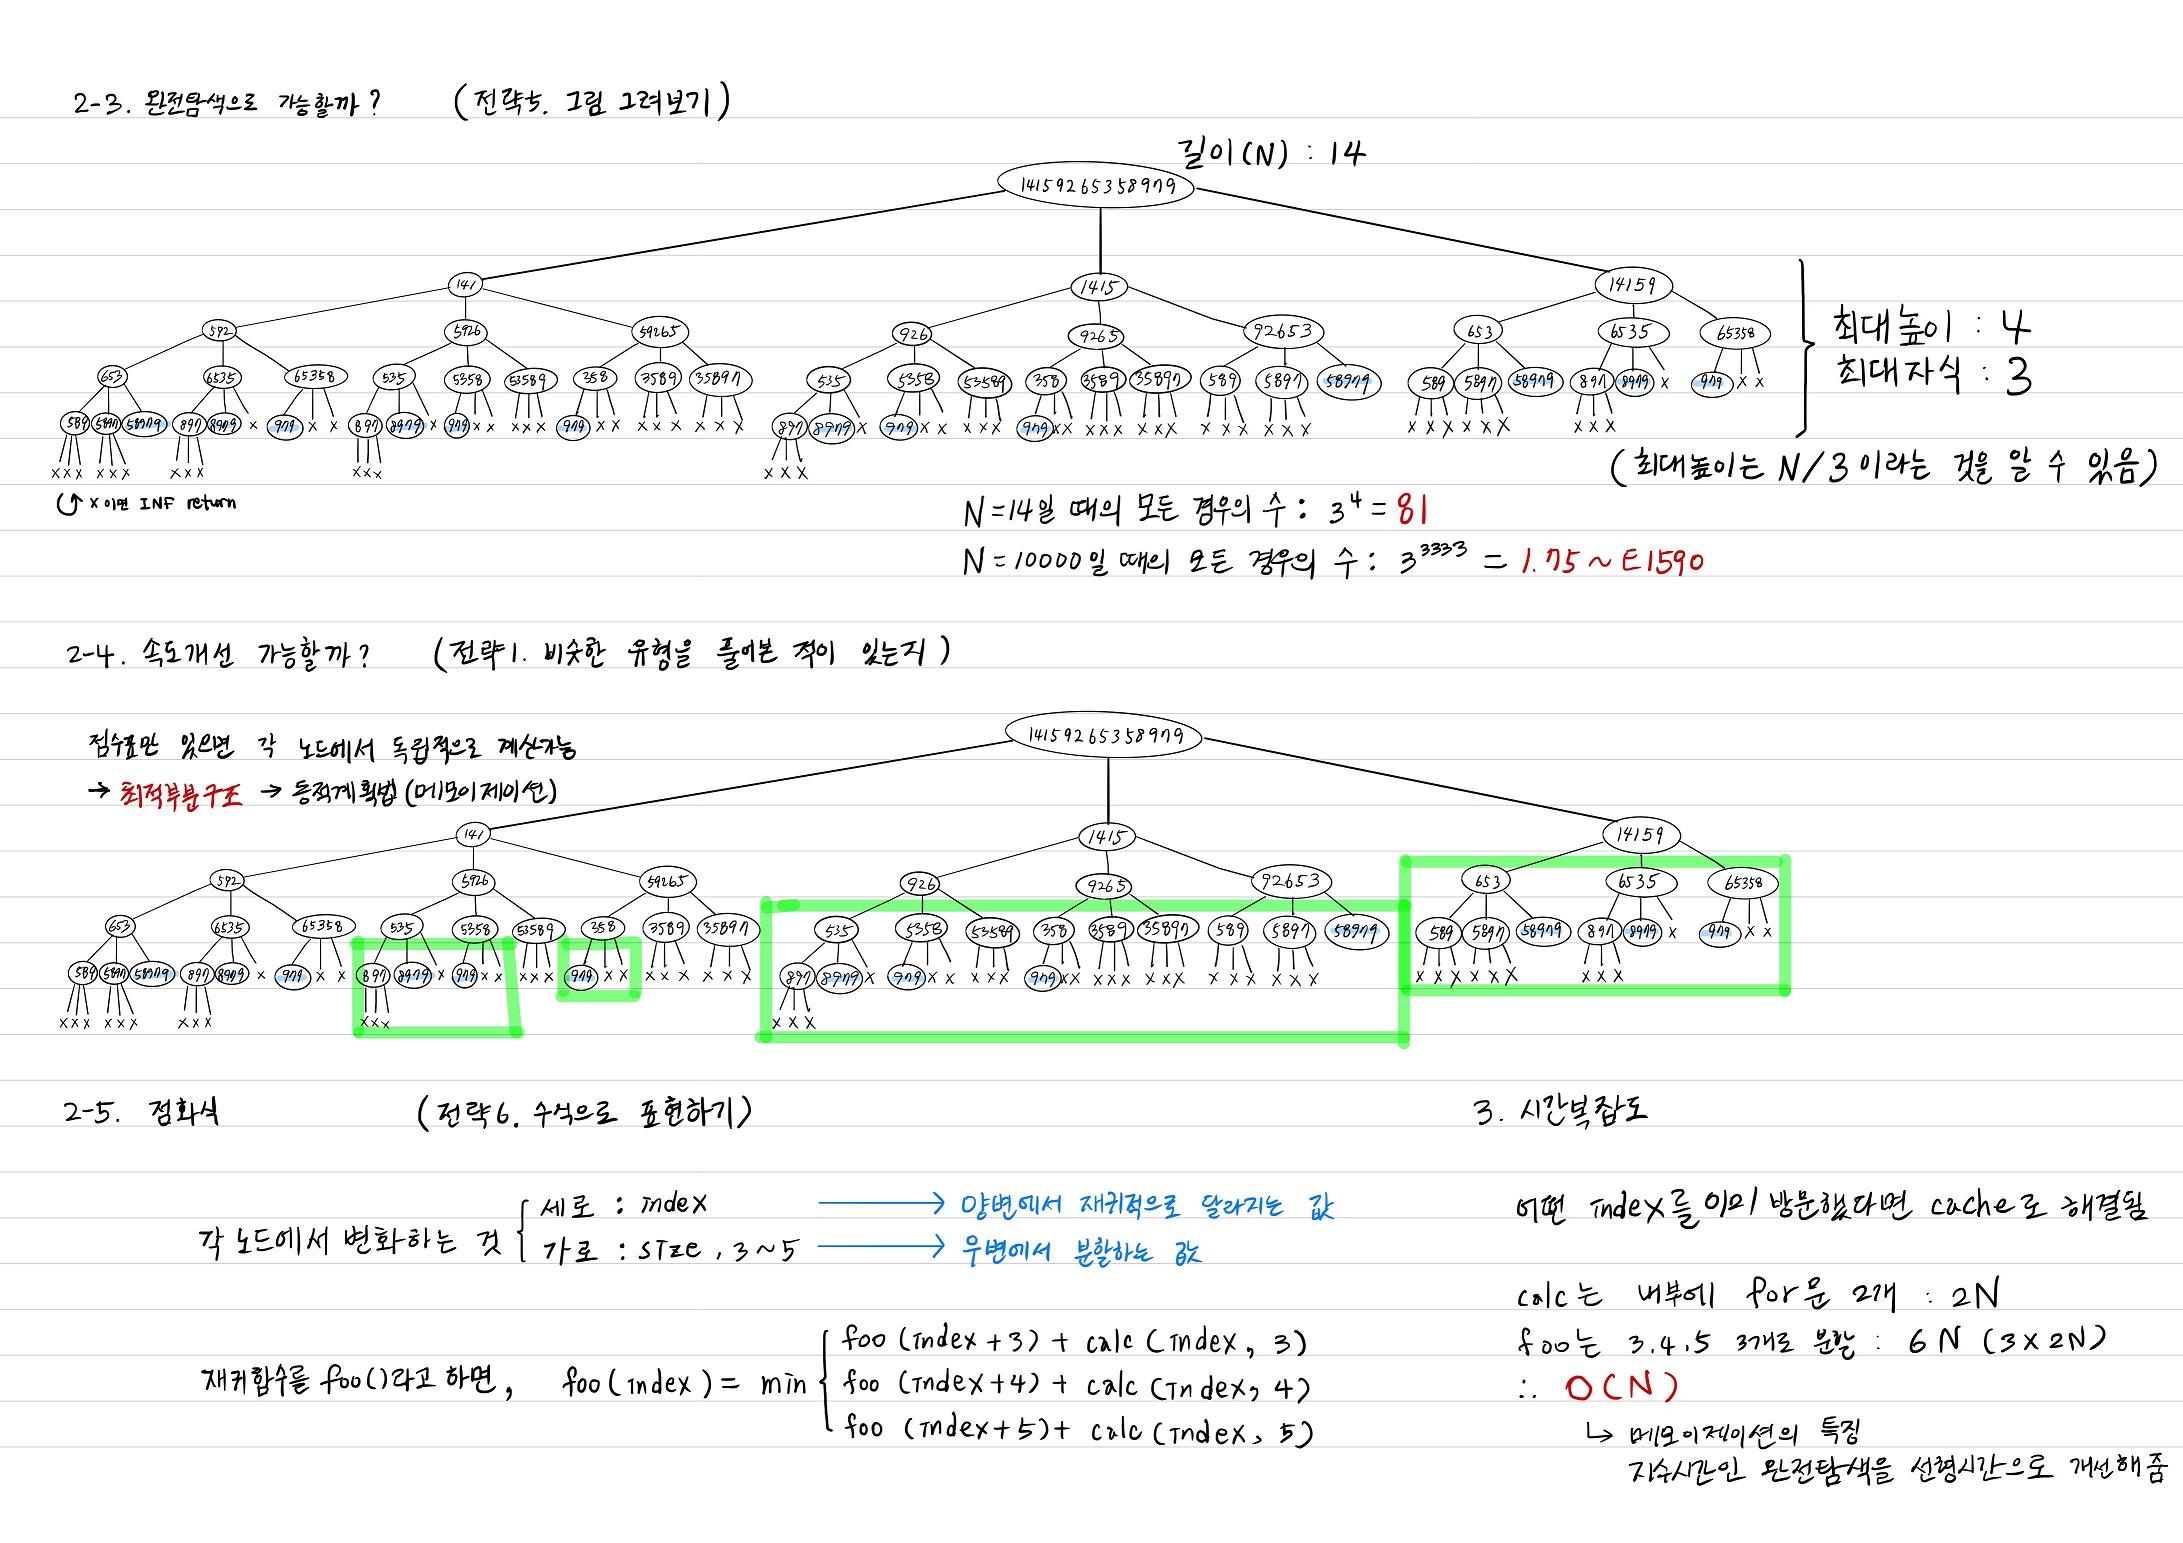 2-3. 완전탐색으로 가능할까? (전략5. 그림 그려보기)
길이(N) : 14
14159265358979
141 1415 14159
592 5926 59265 926 9265 92653 653 6535 65358
최대높이 : 4
653 6535 65358 535 5358 53589 358 3589 35897 535 5358 53589 358 3589 35897 589 5897 58979 589 5897 58979 897 8979 x 979 x x
최대자식 : 3
589 5897 58979 897 8979 x 979 x x 897 8979 x 979 x x x x x 979 x x x x x x x x 897 8979 x 979 x x x x x 979 x x x x x x x x x x x x x x x x x x x x x x x x
x x x x x x x x x x x x x x x
(최대높이는 N/3 이라는 것을 알 수 있음)
x 이면 INF return
N=14일 때의 모든 경우의 수 : 3⁴ = 81
N=10000일 때의 모든 경우의 수 : 3³³³³ = 1.75~E1590
2-4. 속도개선 가능할까? (전략1. 비슷한 유형을 풀어본 적이 있는지)
점수표만 있으면 각 노드에서 독립적으로 계산가능
→ 최적부분구조 → 동적계획법(메모이제이션)
14159265358979
141 1415 14159
592 5926 59265 926 9265 92653 653 6535 65358
653 6535 65358 535 5358 53589 358 3589 35897 535 5358 53589 358 3589 35897 589 5897 58979 589 5897 58979 897 8979 x 979 x x
589 5897 58979 897 8979 x 979 x x 897 8979 x 979 x x x x x 979 x x x x x x x x 897 8979 x 979 x x x x x 979 x x x x x x x x x x x x x x x x x x x x x x x x
x x x x x x x x x x x x x x x
2-5. 점화식 (전략6. 수식으로 표현하기)
각 노드에서 변화하는 것
세로 : index → 양변에서 재귀적으로 달라지는 값
가로 : size, 3~5 → 우변에서 분할하는 값
재귀함수를 foo()라고 하면, foo(index) = min
foo (index+3) + calc (index, 3)
foo (index+4) + calc (index, 4)
foo (index+5) + calc (index, 5)
3. 시간복잡도
어떤 index를 이미 방문했다면 cache로 해결됨
calc는 내부에 for문 2개 : 2N
foo는 3.4.5 3개로 분할 : 6N (3x2N)
∴ O(N)
↳ 메모이제이션의 특징
지수시간인 완전탐색을 선형시간으로 개선해줌